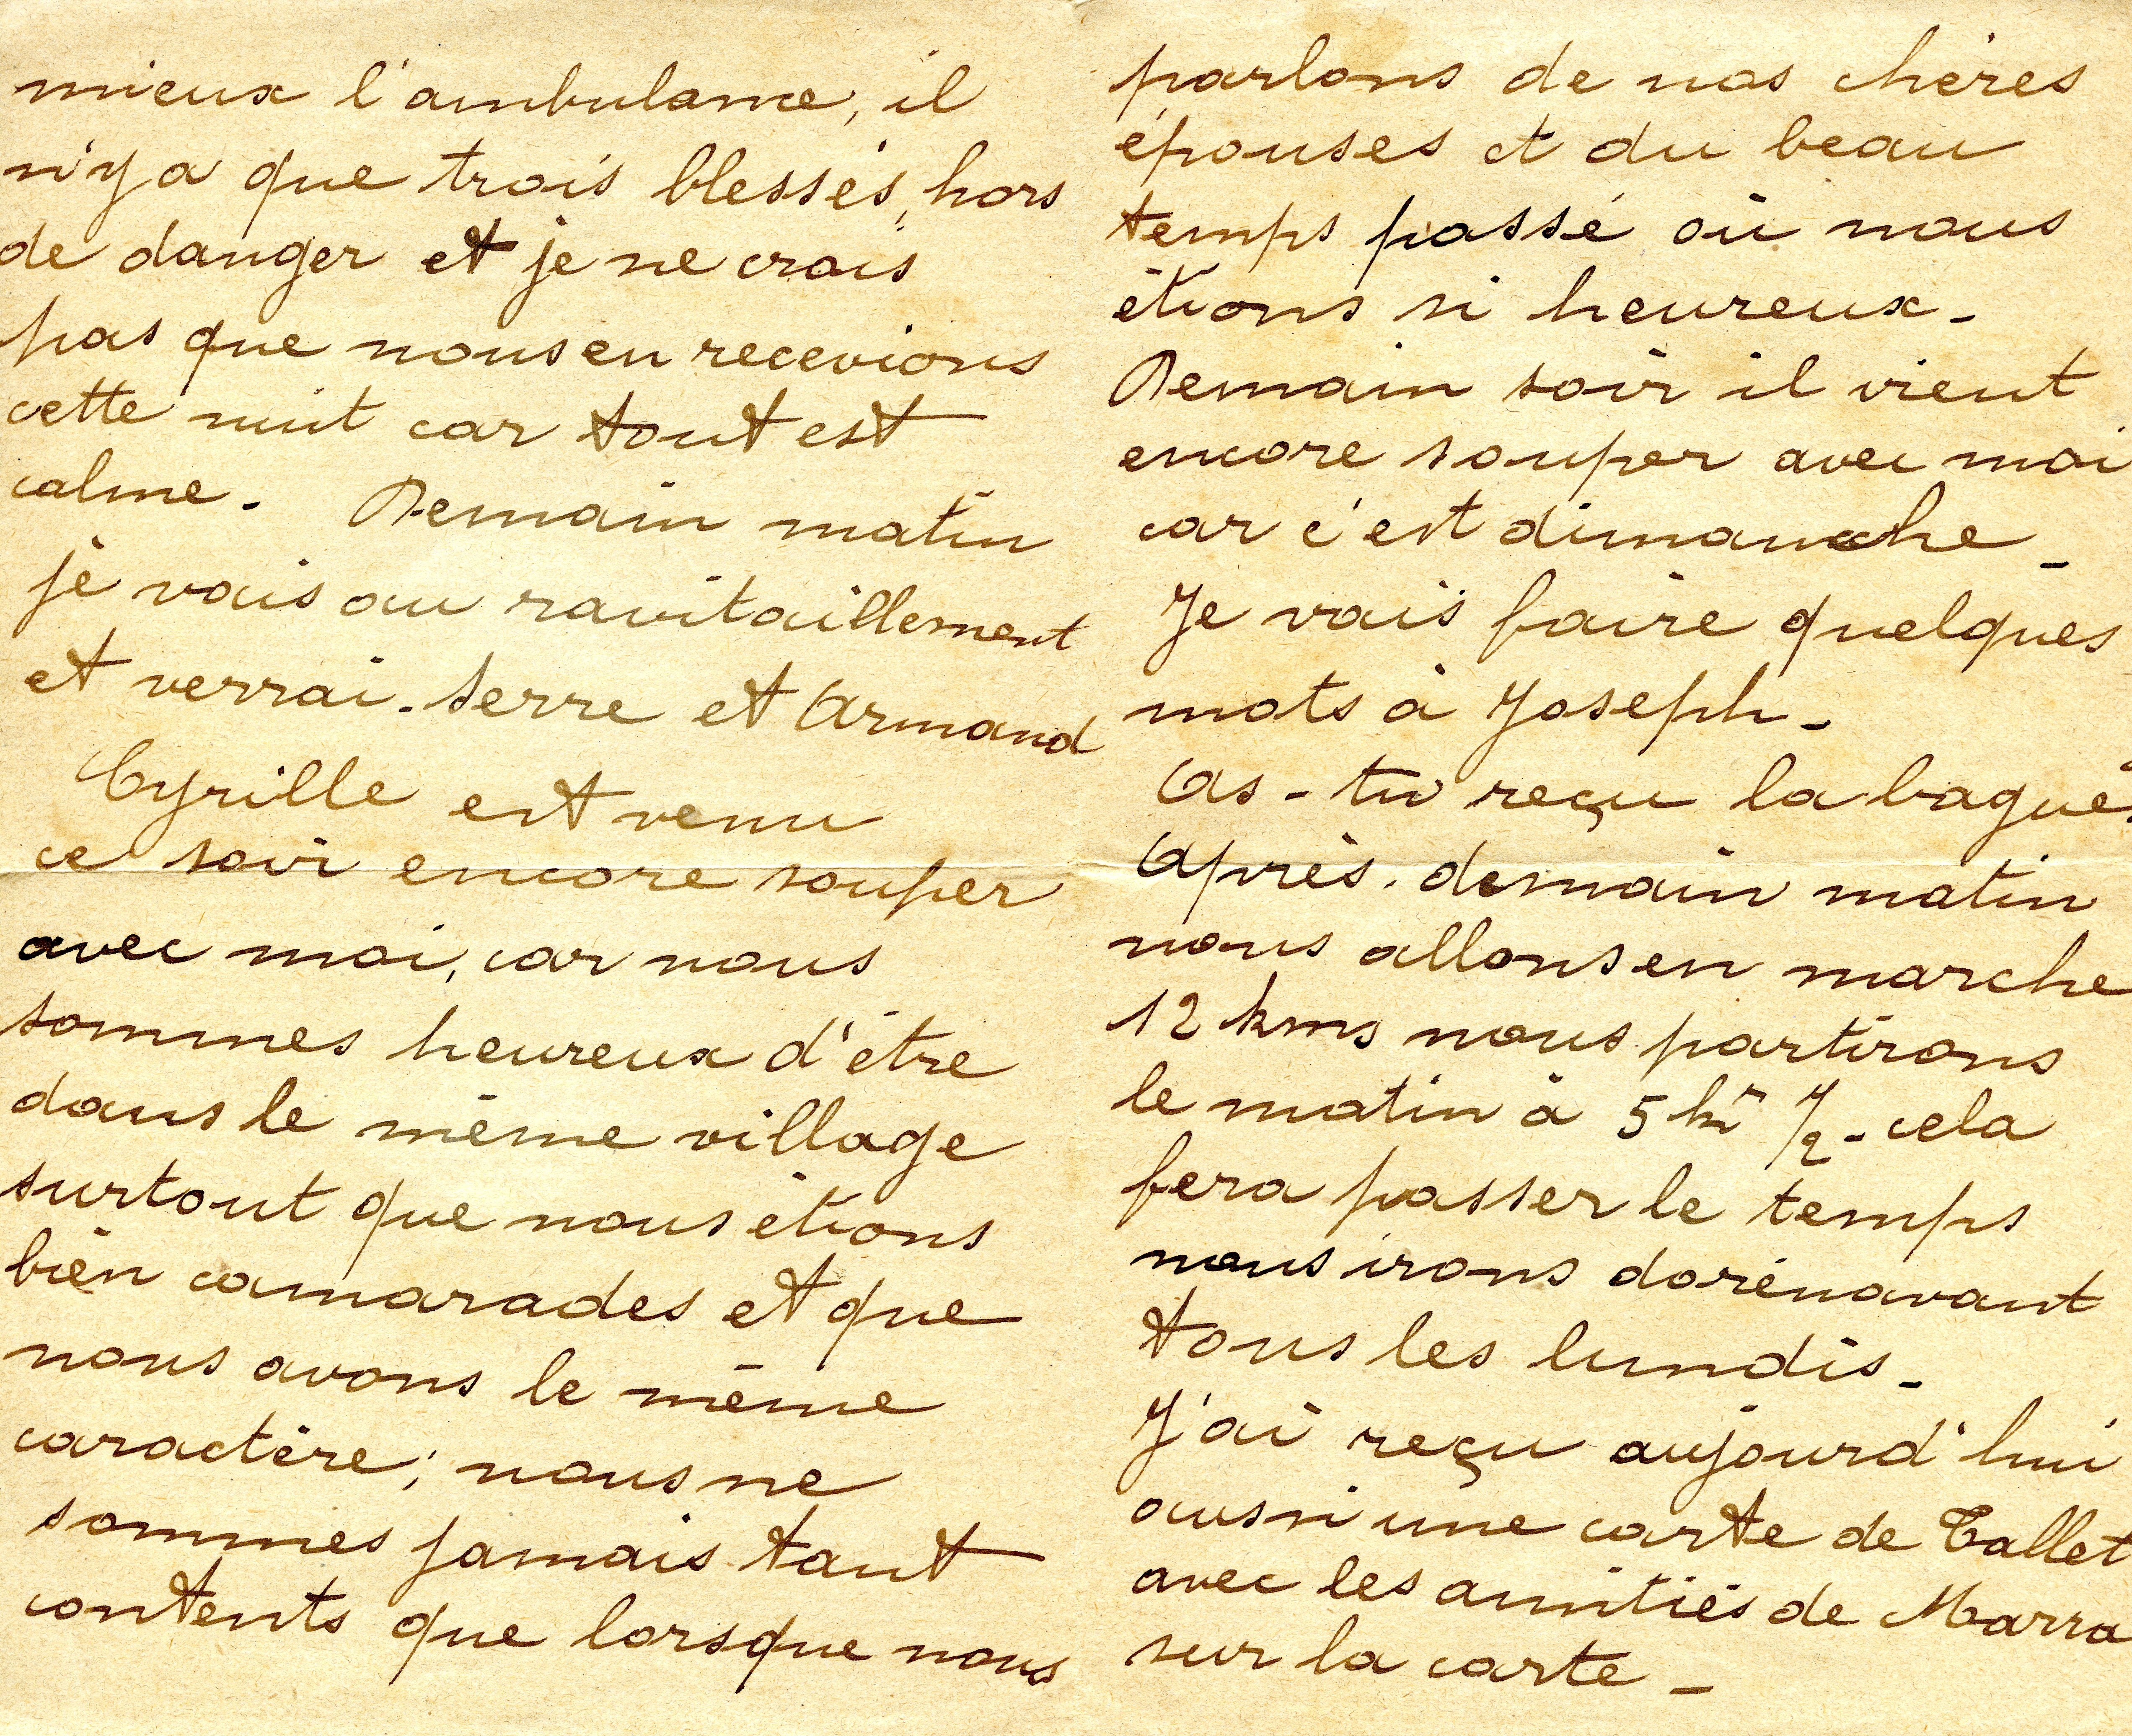 mieux l'ambulance, il
n'y a que trois blessés, hors
de danger et je ne crois
pas que nous en recevions
cette nuit car tout est
calme. Demain matin
je vais au ravitaillement
et verrai. Serre et Armand
Cyrille est venu
ce soir encore souper
avec moi, car nous
sommes heureux d'être
dans le même village
surtout que nous étions
bien camarades et que
nous avons le même
caractère; nous ne
sommes jamais tant
contents que lorsque nous
parlons de nos chères
épouses et du beau
temps passé où nous
étions si heureux -
Demain soir il vient
encore souper avec moi
car c'est dimanche -
Je vais faire quelques
mots à Joseph -
As-tu reçu la bague.
Après. demain matin
nous allons en marche
12 kms nous partirons
le matin à 5 hr 1/2 - cela
fera passer le temps
nous irons dorénavant
tous les lundis -
J'ai reçu aujourd'hui
aussi une carte de Tallet
avec les amitiés de Marra
sur la carte -